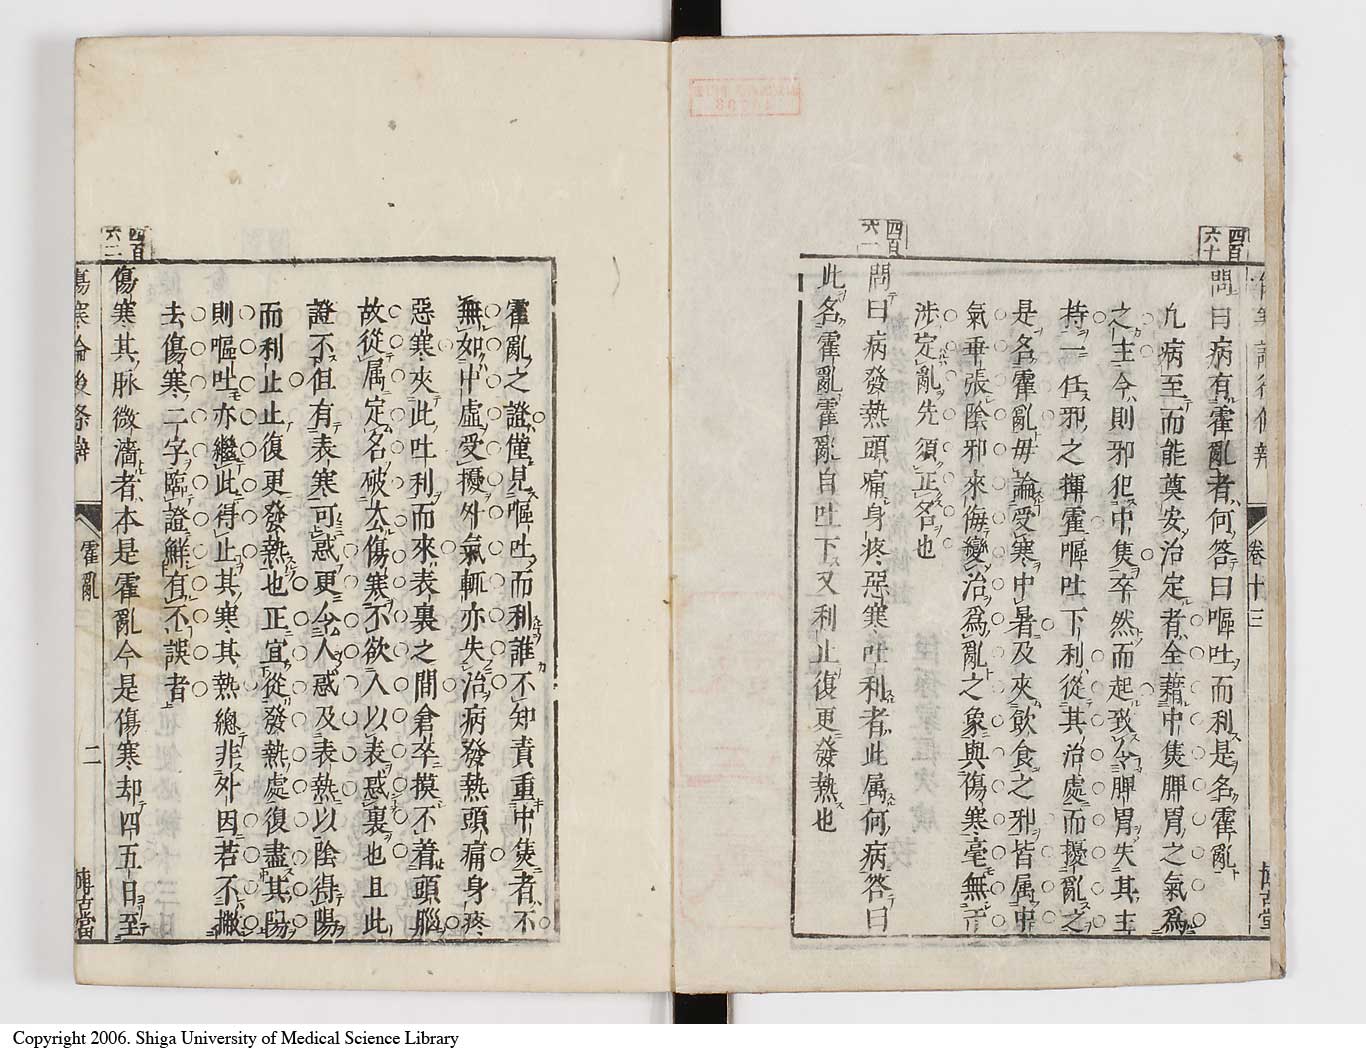 四百
六十
問曰病有霍亂者何答曰嘔吐而利是名霍亂
凡病至而能奠安治定者全藉中焦脾胃之氣爲
之主今則邪犯中焦卒然而起致令脾胃失其主
持一任邪之揮霍嘔吐下利從其治處而擾亂之
是名霍亂毋論受寒中暑及夾飲食之邪皆属中
氣乖張陰邪來侮變治爲亂之象與傷寒毫無干
涉定亂先須正名也
四百
六一
問曰病發熱頭痛身疼惡寒吐利者此属何病答曰
此名霍亂霍亂自吐下又利止復更發熱也
卷十三
博古堂
霍亂之證僅見嘔吐而利誰不知責重中焦者不
無如中虛受擾外氣輒亦失治病發熱頭痛身疼
惡寒夾此吐利而來表裏之間倉卒摸不着頭腦
故從属定名破去傷寒不欲人以表惑裏也且此
證不但有表寒可惑更令人惑及表熱以陰得陽
而利止止復更發熱也正宜從發熱處復盡其陽
則嘔吐亦繼此得止其寒其熱總非外因若不撇
去傷寒二字臨證鮮有不誤者
四百
六二
傷寒其脉微濇者本是霍亂今是傷寒却四五日至
傷寒論後条辨
霍亂
二
博古堂
Copyright 2006. Shiga University of Medical Science Library